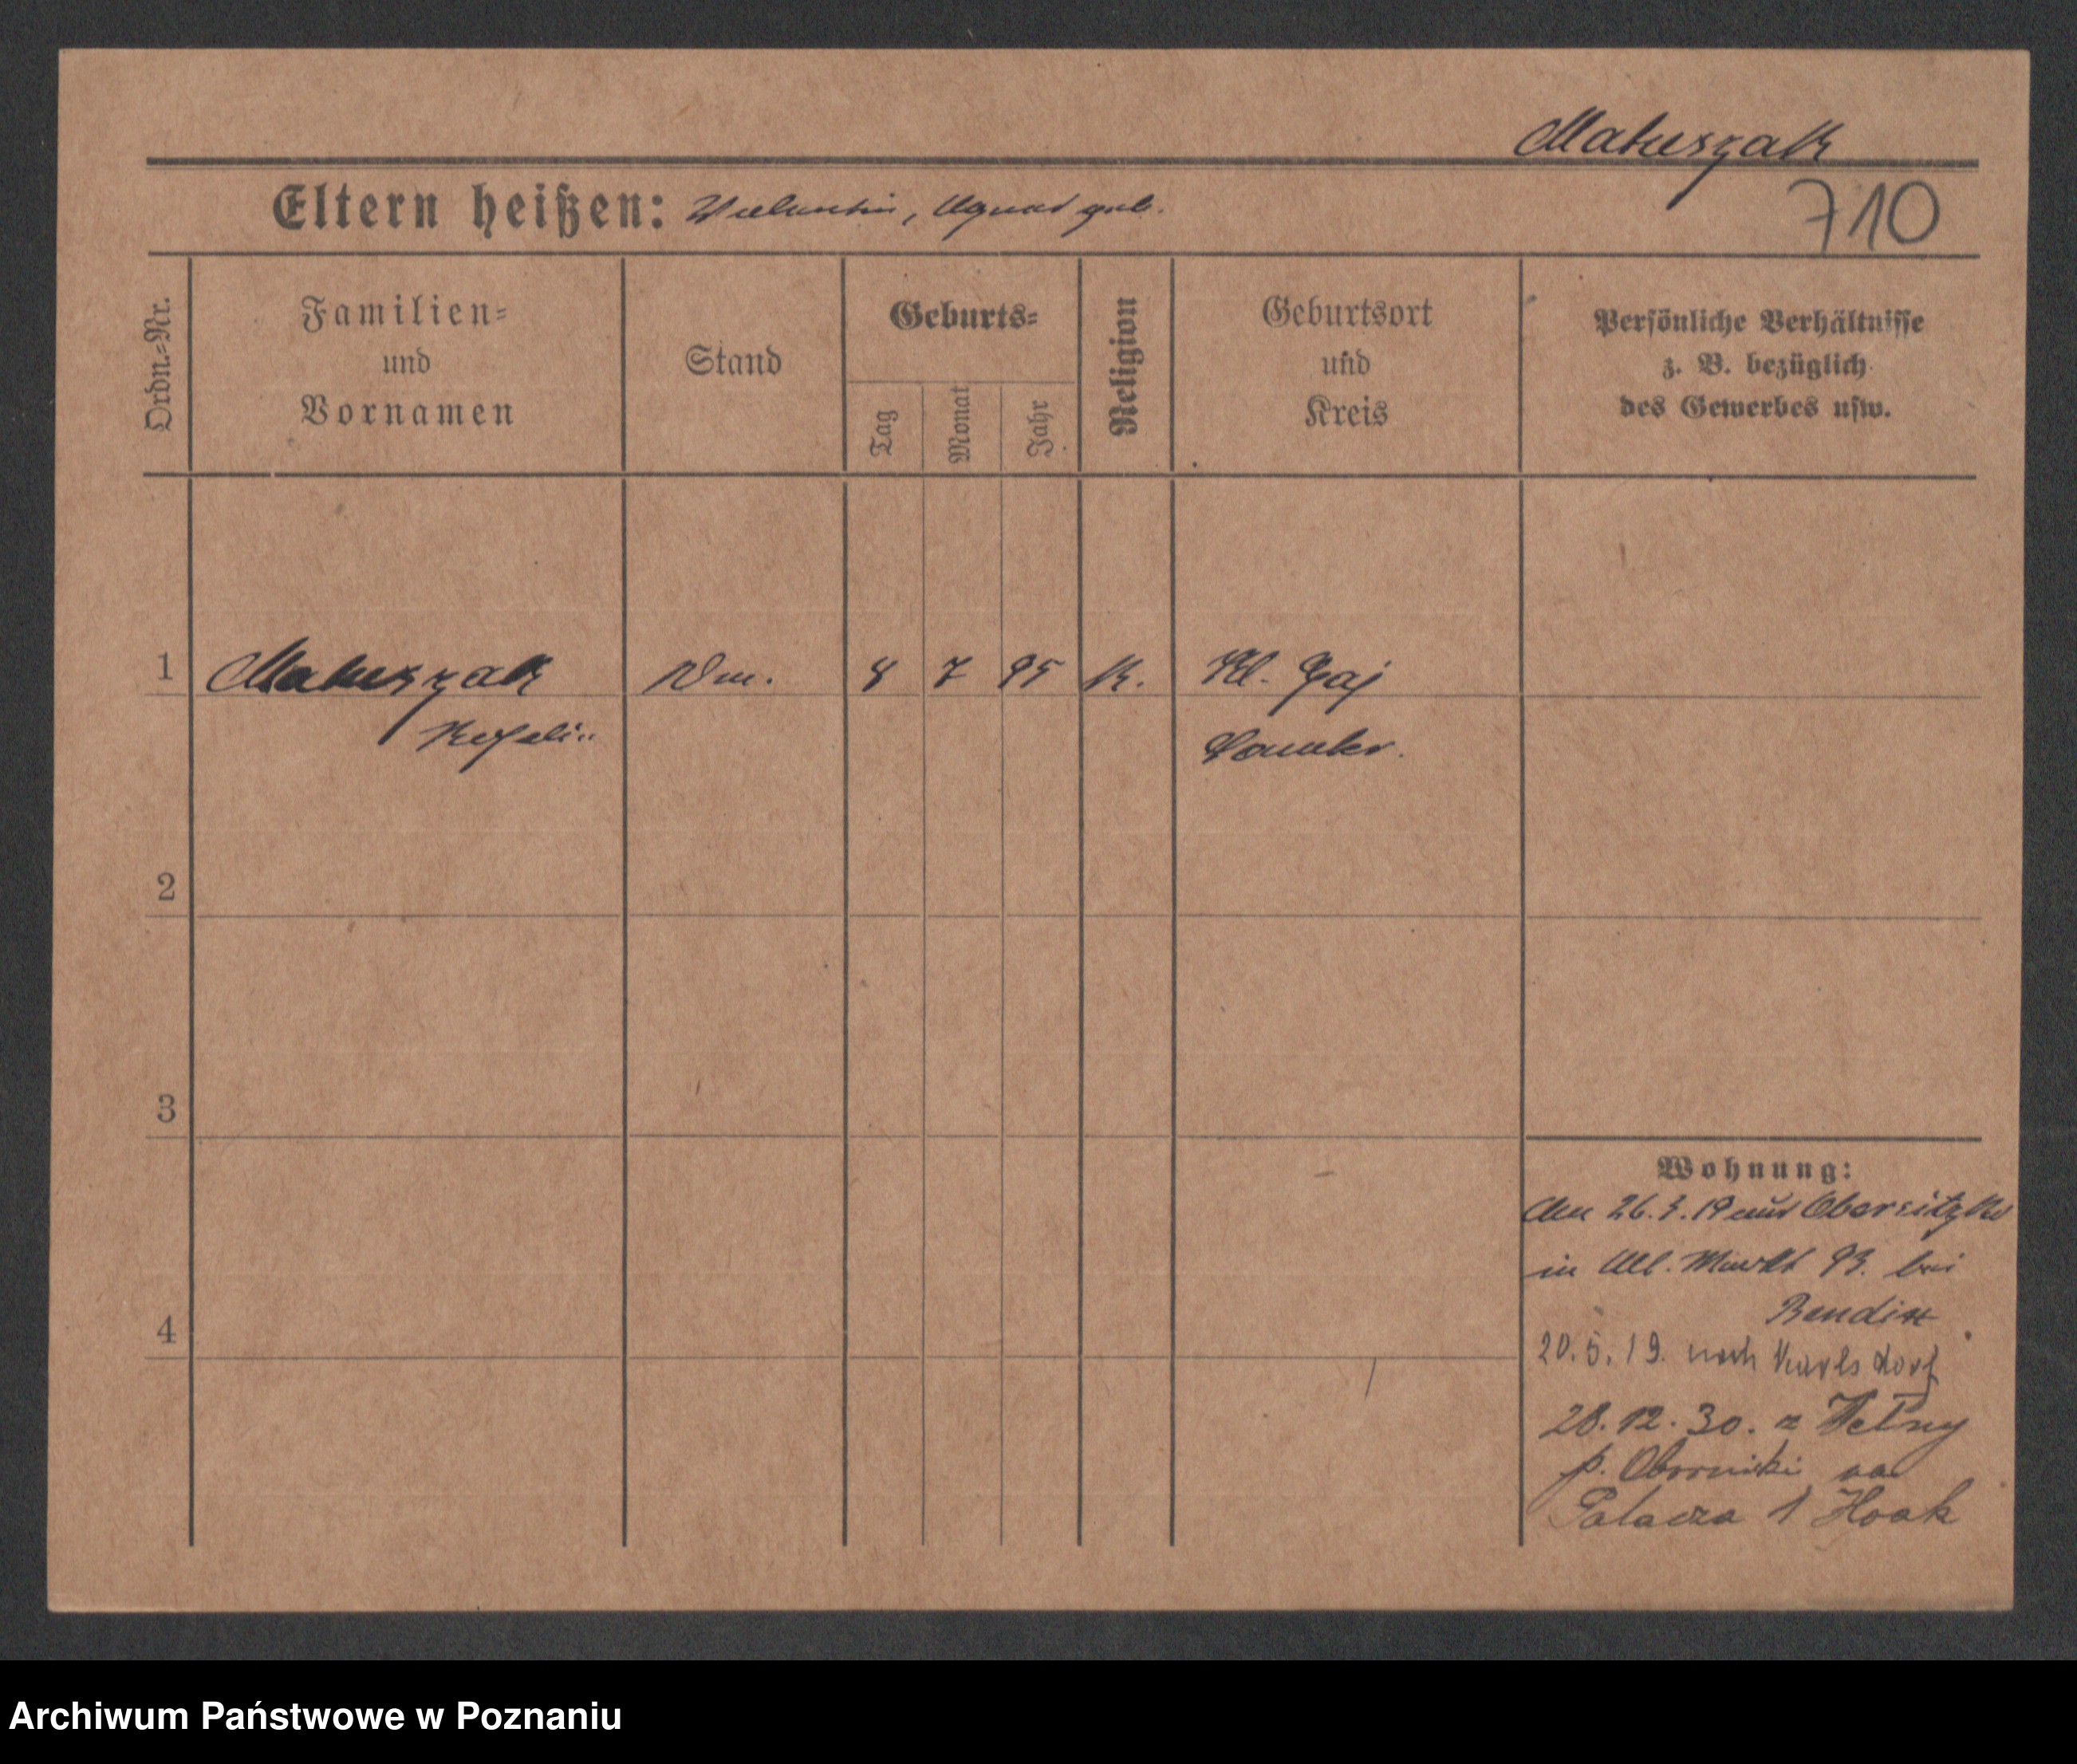 Matuszak
Eltern heißen: Valentin, Agnes geb.
710
Ordn.-Nr.
Familien-
und
Vornamen
Stand
Geburts-
Tag
Monat
Jahr
Religion
Geburtsort
und
Kreis
Persönliche Verhältnisse
z. B. bezüglich
des Gewerbes usw.
1 Matuszak 8 7 95 K. Kl. Gaj
Samter.
2
3
4
Wohnung:
26.3.19 aus Obersitzko
in Alt. Markt 93. bei
20.5.19. nach Karlsdorf
28.12.30. z Wełny
p. Oborniki na
Palacza 1 Hoak
Archiwum Państwowe w Poznaniu